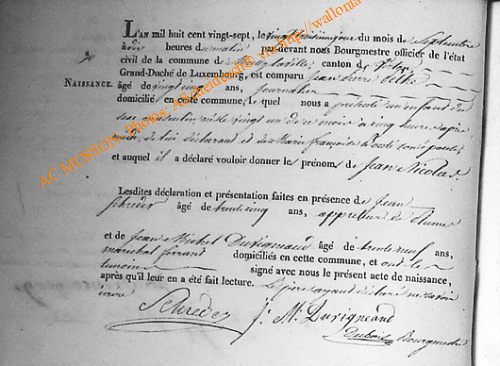 L'AN mil huit cent vingt-sept, le vingt deuxième jour du mois de Septembre
à dix heures du matin par-devant nous Bourgmestre officier de l'état
civil de la commune de canton de
Grand-Duché de Luxembourg, est comparu Jean
NAISSANCE. âgé de vingt cinq ans, journalier
domicilié en cette commune, le quel nous a présenté un enfant du
sexe masculin né le vingt un de ce mois à cinq heures après
midi, de lui déclarant et de Marie françoise son épouse
et auquel il a déclaré vouloir donner les prénoms de Jean Nicolas.
Lesdites déclaration et présentation faites en présence de Jean
Schreder âgé de trente cinq ans, appréteur de
et de Jean Michel Durigneaud âgé de trente neuf ans,
maréchal ferrant domiciliés en cette commune, et ont les
temoins signé avec nous le présent acte de naissance,
après qu'il leur en a été fait lecture. Le père ayant déclaré ne savoir
écrire
Schreder J. M. Durigneaud
Dubois Bourgmestre
AC MUSSON- Photos